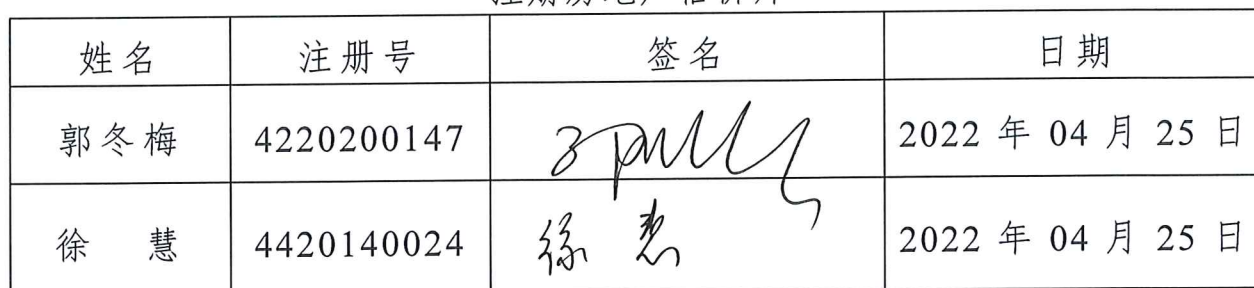 姓名 注册号 签名 日期
郭冬梅 4220200147 2022 年 04 月 25 日
徐 慧 4420140024 徐慧 2022 年 04 月 25 日